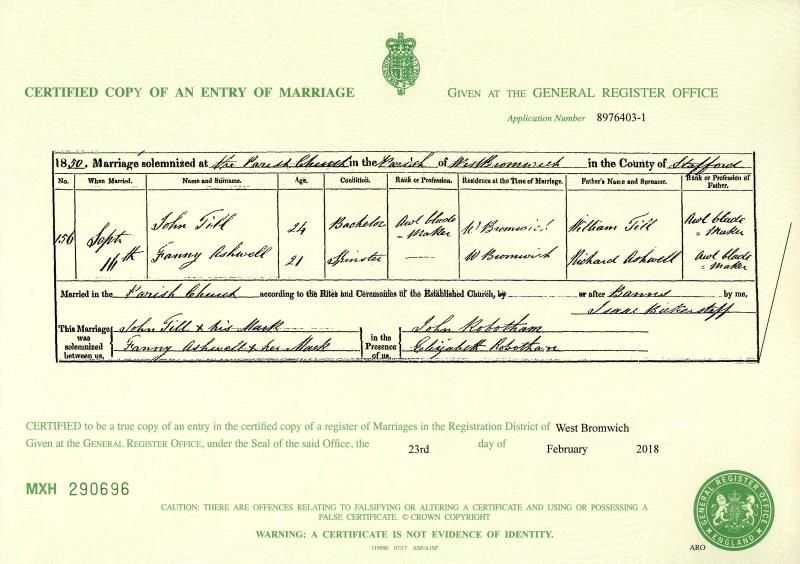 CERTIFIED COPY OF AN ENTRY OF MARRIAGE
GIVEN AT THE GENERAL REGISTER OFFICE
Application Number 8976403-1
1850. Marriage solemnized at the Parish Church in the Parish of West Bromwich in the County of Stafford
No. When Married. Name and Surname. Age. Condition. Rank or Profession. Residence at the Time of Marriage. Father's Name and Surname. Rank or Profession of Father.
156 Septr 16th
John Till 24 Bachelor Awl blade = Maker W Bromwich William Till Awl blade = Maker
Fanny Ashwell 21 Spinster —— W Bromwich Richard Ashwell Awl blade = Maker
Married in the Parish Church according to the Rites and Ceremonies of the Established Church, by or after Banns by me,
Isaac Bickerstaff
This Marriage was solemnized between us,
John Till x his Mark
Fanny Ashwell x her Mark
in the Presence of us,
John Robotham
Elizabeth Robotham
CERTIFIED to be a true copy of an entry in the certified copy of a register of Marriages in the Registration District of West Bromwich
Given at the GENERAL REGISTER OFFICE, under the Seal of the said Office, the 23rd day of February 2018
MXH 290696
CAUTION: THERE ARE OFFENCES RELATING TO FALSIFYING OR ALTERING A CERTIFICATE AND USING OR POSSESSING A
FALSE CERTIFICATE. © CROWN COPYRIGHT
WARNING: A CERTIFICATE IS NOT EVIDENCE OF IDENTITY.
GENERAL REGISTER OFFICE
ENGLAND
ARO